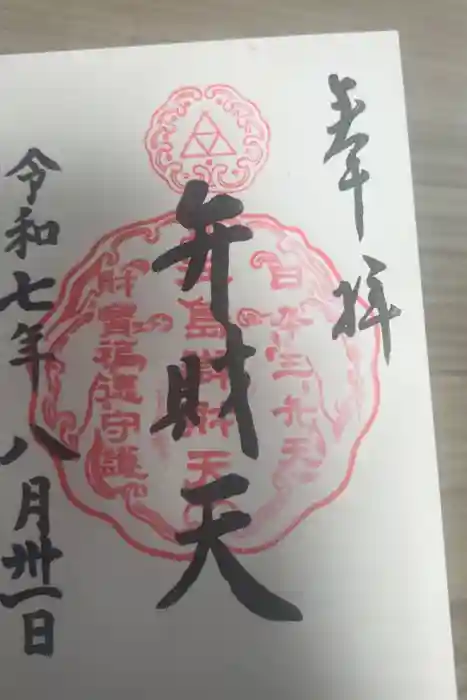 奉拝
日本三弁天
江島辨財天
財寶福運守護
弁財天
令和七年八月卅一日